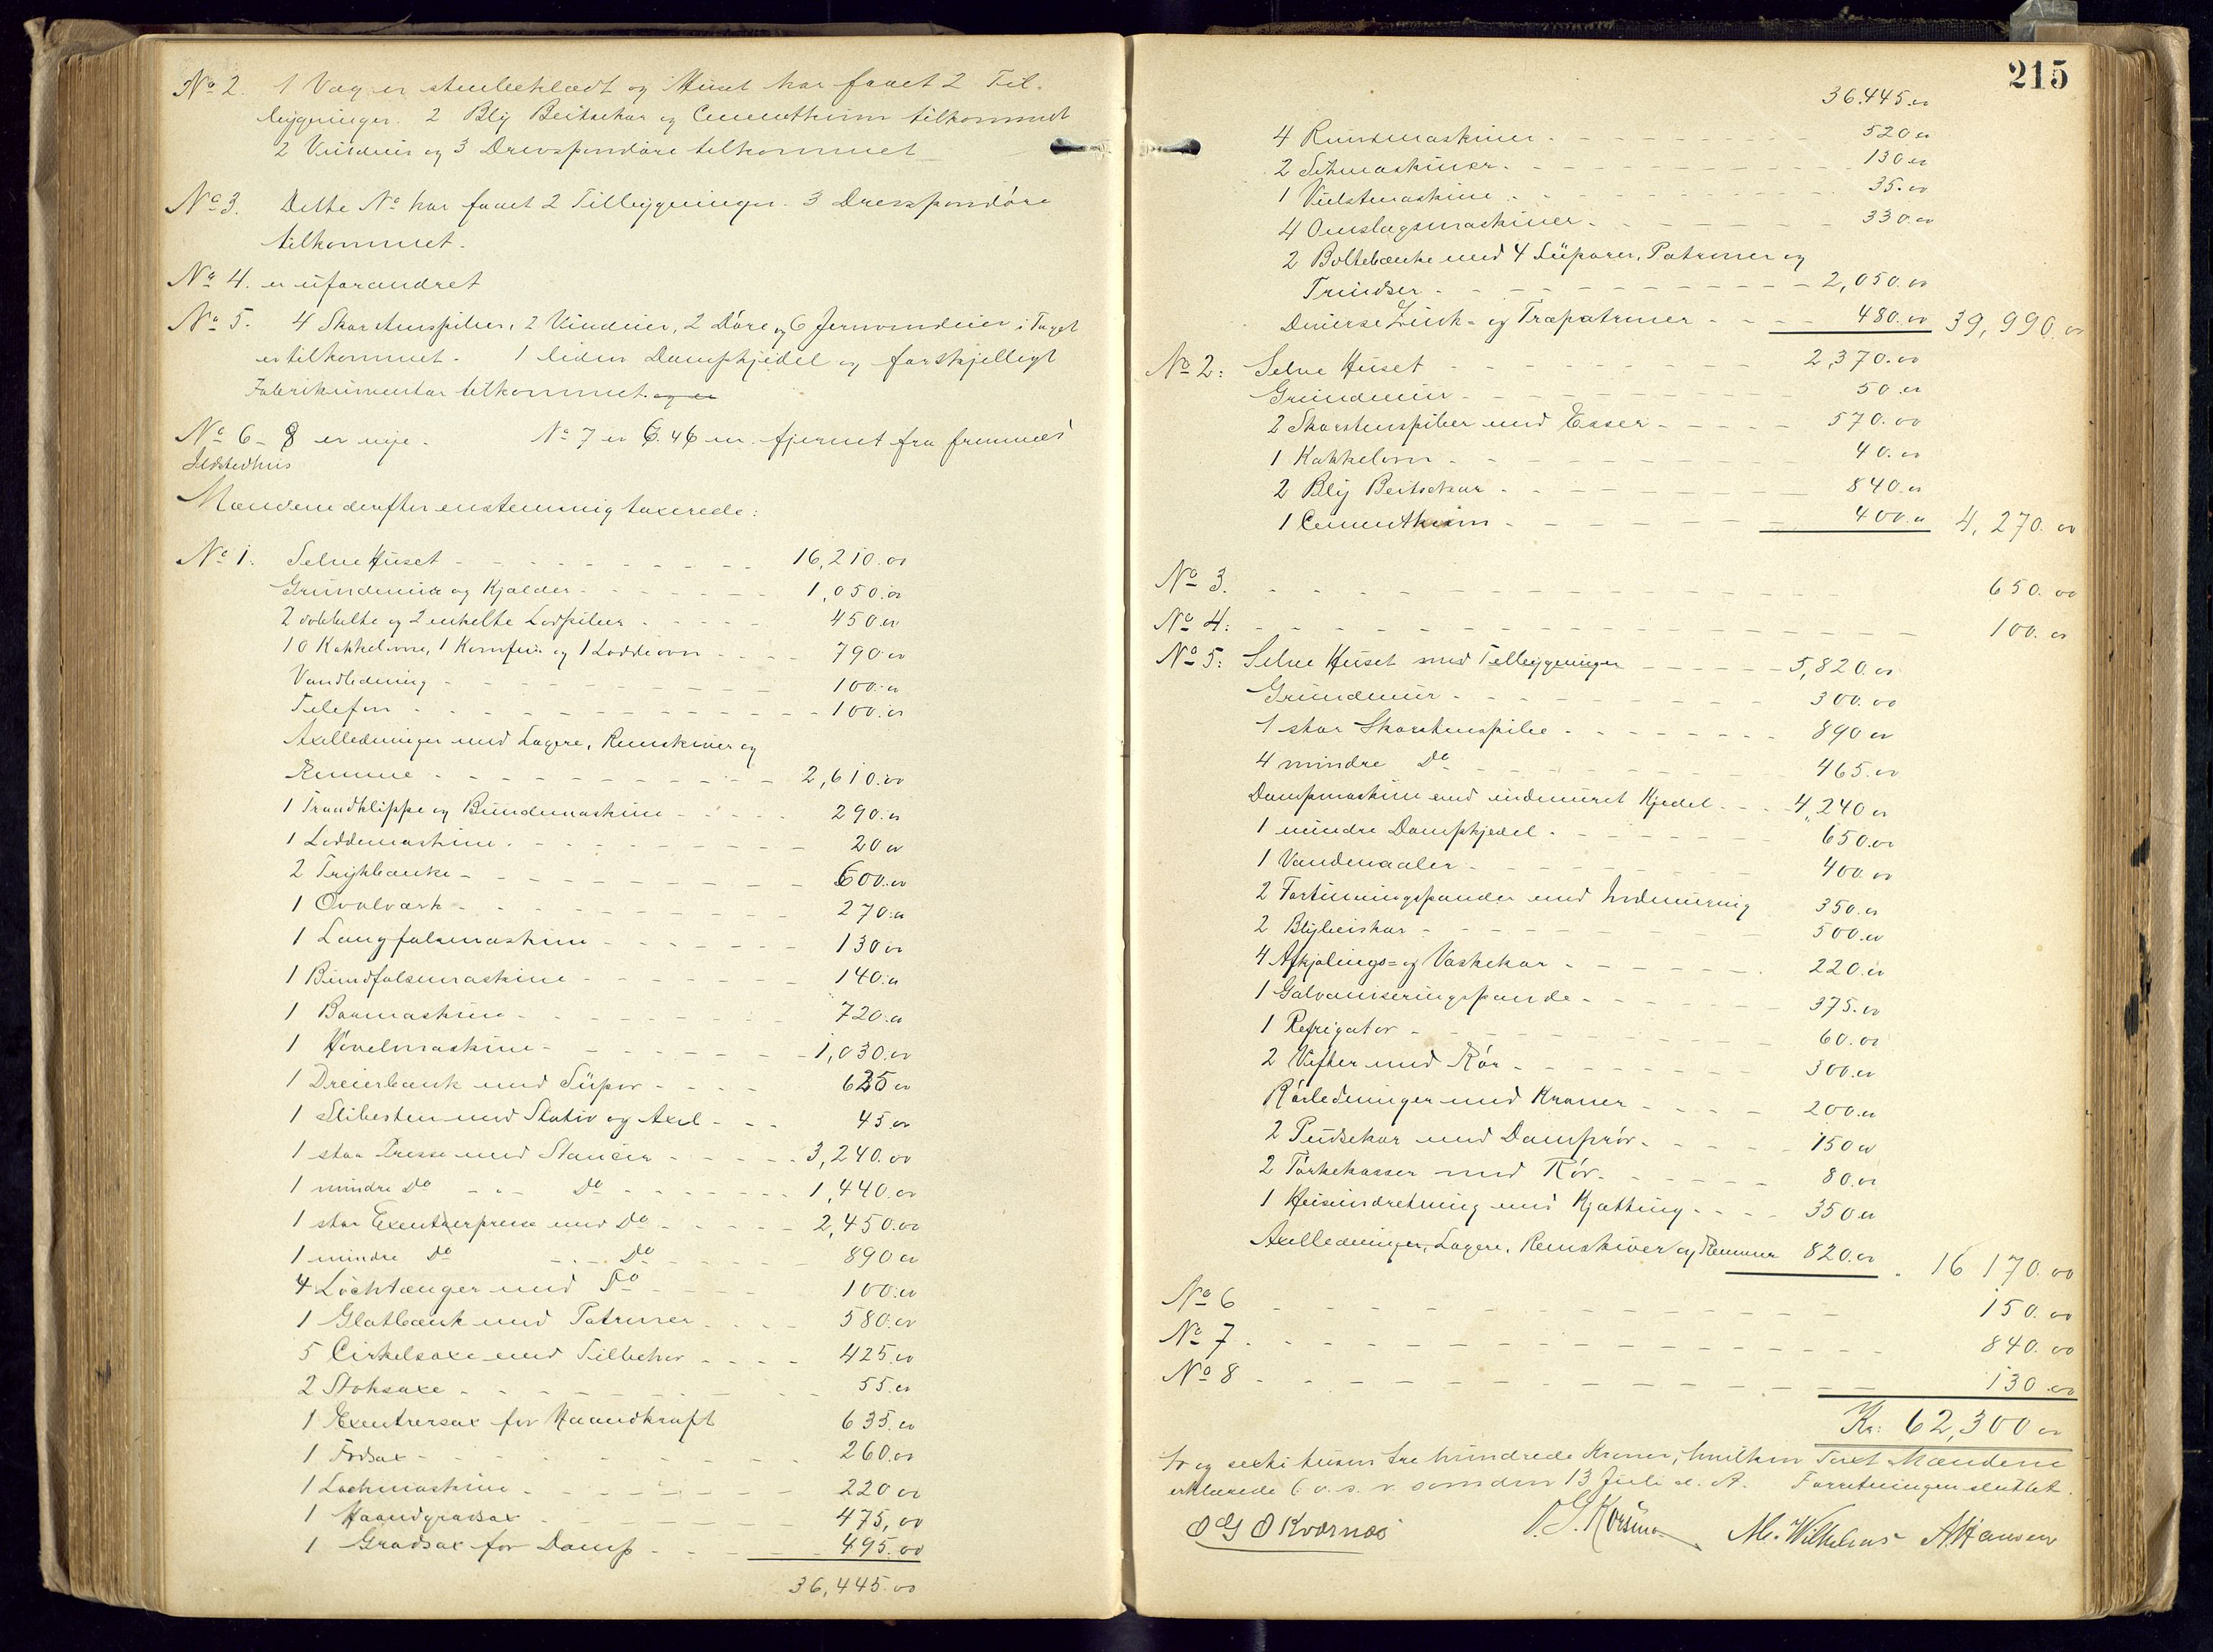 No 2. 1 Væg er stenbeklædt og Huset har faaet 2 Til-
bygninger. 2 Bly Beitsekar og Cementkum tilkommet
2 Vinduer og 3 Drevspondöre tilkommet
No 3. Dette No har faaet 2 Tilbygninger. 3 Drevspondöre
tilkommet.
No 4. er uforandret
No 5. 4 Skorstenspiber, 2 Vinduer, 2 Döre og 6 Jernvinduer i Taget
er tilkommet. 1 liden Dampkjedel og forskjelligt
Fabrikinventar tilkommet. og er
No 6 - 8 er nye. No 7 er 6.46 m. fjernet fra fremmed
Ildstedhus
Mændene derefter enstemmig taxerede:
No 1. Selve Huset - 16,210.00
Grundmur og Kjælder - 1,050.00
2 dobbelte og 2 enkelte Lodpiber - 450.00
10 Kakkelovne, 1 Komfur og 1 Loddeovn - 790.00
Vandledning - 100.00
Telefon - 100.00
Axelledninger med Lagere, Remskiver og
Remme - 2,610.00
1 Traadklippe og Bundemaskine - 290.00
1 Loddemaskine - 20.00
2 Trykbænke - 600.00
1 Ovalværk - 270.00
1 Langfalsmaskine - 130.00
1 Bundfalsemaskine - 140.00
1 Boremaskine - 720.00
1 Hövelmaskine - 1,030.00
1 Dreierbænk med Süpor - 625.00
1 Slibesten med Stativ og Axel - 45.00
1 stor Presse med Stanser - 3,240.00
1 mindre Do - Do - 1,440.00
1 stor Exenterpresse med Do - 2,450.00
1 mindre Do - Do - 890.00
4 Lochtænger med Do - 100.00
1 Glatbænk med Patroner - 580.00
5 Cirkelsaxe med Tilbehør - 425.00
2 Stoksaxe - 55.00
1 Exentersax for Haandkraft 635.00
1 Fodsax - 260.00
1 Lochmaskine - 220.00
1 Haandgradsax - 475,00
1 Gradsax for Damp - 495.00
36,445.00
215
36.445.00
4 Rundmaskiner - 520.00
2 Sikmaskiner - 130.00
1 Vulstmaskine - 35.00
4 Omslagsmaskiner - 330.00
2 Boltebænke med 4 Süporer, Patroner og
Trindser - 2,050.00
Diverse Zink- og Træpatroner - 480.00 39,990.00
No 2: Selve Huset - 2,370.00
Grundmur - 50.00
2 Skorstenspiber med Esser - 570.00
1 Kakkelovn - 40.00
2 Bly Beitsekar - 840.00
1 Cementkum - 400.00 4,270.00
No 3. - 650.00
No 4: - 100.00
No 5: Selve Huset med Tilbygninger - 5,820.00
Grundmur - 300.00
1 stor Skorstenspibe - 890.00
4 mindre Do - 465.00
Dampmaskine med indmuret Kjedel - 4,240.00
1 mindre Dampkjedel - 650.00
1 Vandmaaler - 400.00
2 Fortinningspander med Indmuring 350.00
2 Blybeiskar - 500.00
4 Afkjølings- og Vaskekar - 220.00
1 Galvaniseringspande - 375.00
1 Refrigator - 60.00
2 Vifter med Rör - 300.00
Rörledninger med Kraner - 200.00
2 Pudsekar med Damprör - 150.00
2 Törkekasser med Rör - 80.00
1 Heiseindretning med Kjætting - 350.00
Axelledninger, Lagere, Remskiver og Remmer 820.00 16 170.00
No 6 - 150.00
No 7 - 840.00
No 8 - 130.00
Kr: 62,300.00
To og sexti tusen tre hundrede Kroner, hvilken Taxt Mændene
erklærede 6. o. s. v. som den 13 Juli d. A. Forretningen sluttet.
O G O Kværnæs M. Wilhelms A. Hansen